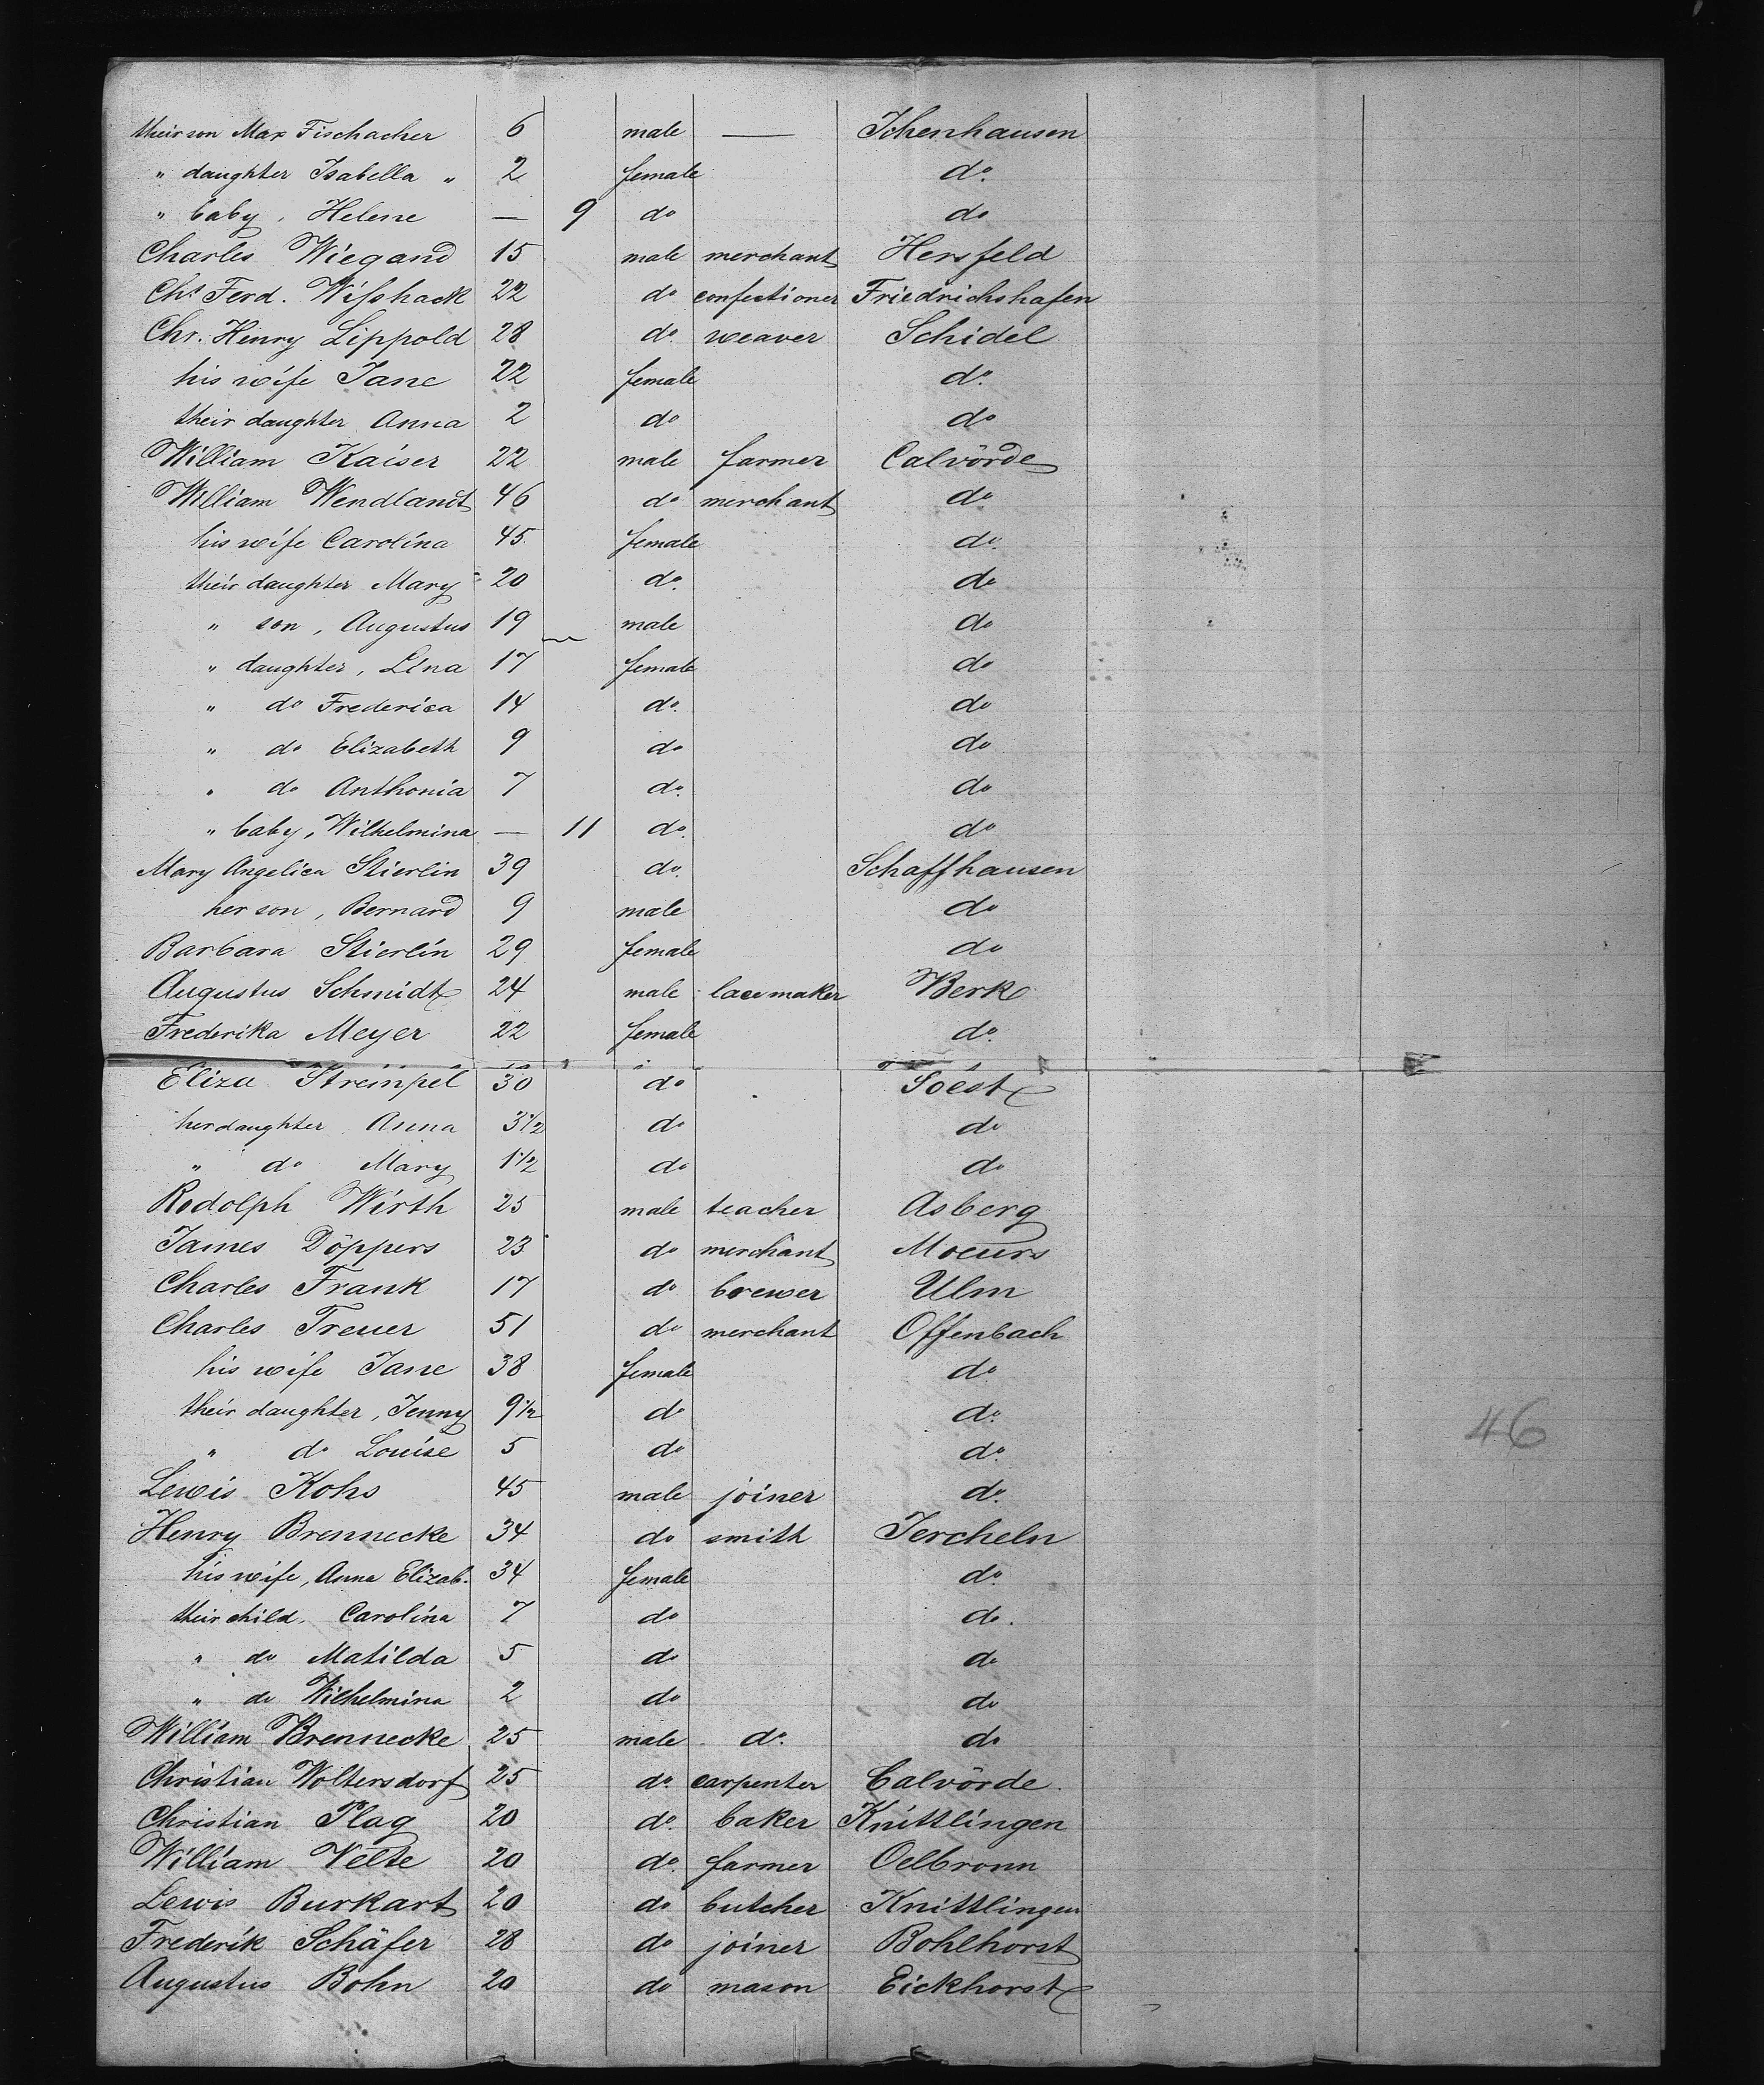 their son Max Fischacher 6 male — Ichenhausen
" daughter Isabella " 2 female do.
" baby, Helene — 9 do do
Charles Wiegand 15 male merchant Hersfeld
Chs Ferd. Wisshack 22 do confectioner Friedrichshafen
Chr. Henry Lippold 28 do. weaver Schidel
his wife Jane 22 female do.
their daughter Anna 2 do do
William Kaiser 22 male farmer Calvörde
William Wendlandt 46 do merchant do
his wife Carolina 45. female do.
their daughter Mary 20 do. do
" son, Augustus 19 male do
" daughter, Lina 17 female do
" do Frederica 14 do. do
" do Elizabeth 9 do do
" do Anthonia 7 do. do
" baby, Wilhelmina — 11 do. do
Mary Angelica Stierlin 39 do. Schaffhausen
her son, Bernard 9 male do
Barbara Stierlin 29 female do
Augustus Schmidt 24 male lacemaker Berk
Frederika Meyer 22 female do.
Eliza Streinpel 30 do Soest
her daughter Anna 3 1/2 do do
" do Mary 1 1/2 do do
Rodolph Wirth 25 male teacher Asberg
James Döppers 23 do merchant Moeurs
Charles Frank 17 do brewer Ulm
Charles Treuer 51 do merchant Offenbach
his wife Jane 38 female do
their daughter, Jenny 9 1/2 do do.
" do Louise 5 do do.
46
Lewis Kohs 45 male joiner do.
Henry Brennecke 34 do smith Jercheln
his wife, Anna Elizab. 34 female do.
their child, Carolina 7 do do.
" do Matilda 5 do do
" do Wilhelmina 2 do do
William Brennecke 25 male do. do
Christian Woltersdorf 25 do. carpenter Calvörde.
Christian Plag 20 do. baker Knittlingen
William Velte 20 do. farmer Oelbronn
Lewis Burkart 20 do butcher Knittlingen
Frederik Schäfer 28 do joiner Bohlhorst
Augustus Bohn 20 do mason Eickhorst